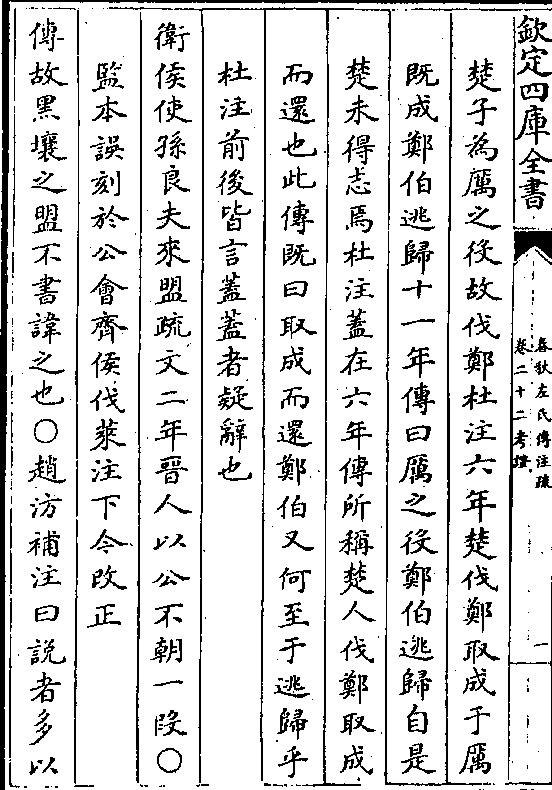 欽定四庫全書
春秋左氏傳注疏
卷二十二考證
一
楚子為厲之役故伐鄭杜注六年楚伐鄭取成于厲
既成鄭伯逃歸十一年傳曰厲之役鄭伯逃歸自是
楚未得志焉杜注蓋在六年傳所稱楚人伐鄭取成
而還也此傳既曰取成而還鄭伯又何至于逃歸乎
杜注前後皆言蓋蓋者疑辭也
衛侯使孫良夫來盟疏文二年晉人以公不朝一段〇
監本誤刻於公會齊侯伐萊注下今改正
傳故黑壤之盟不書諱之也〇趙汸補注曰説者多以